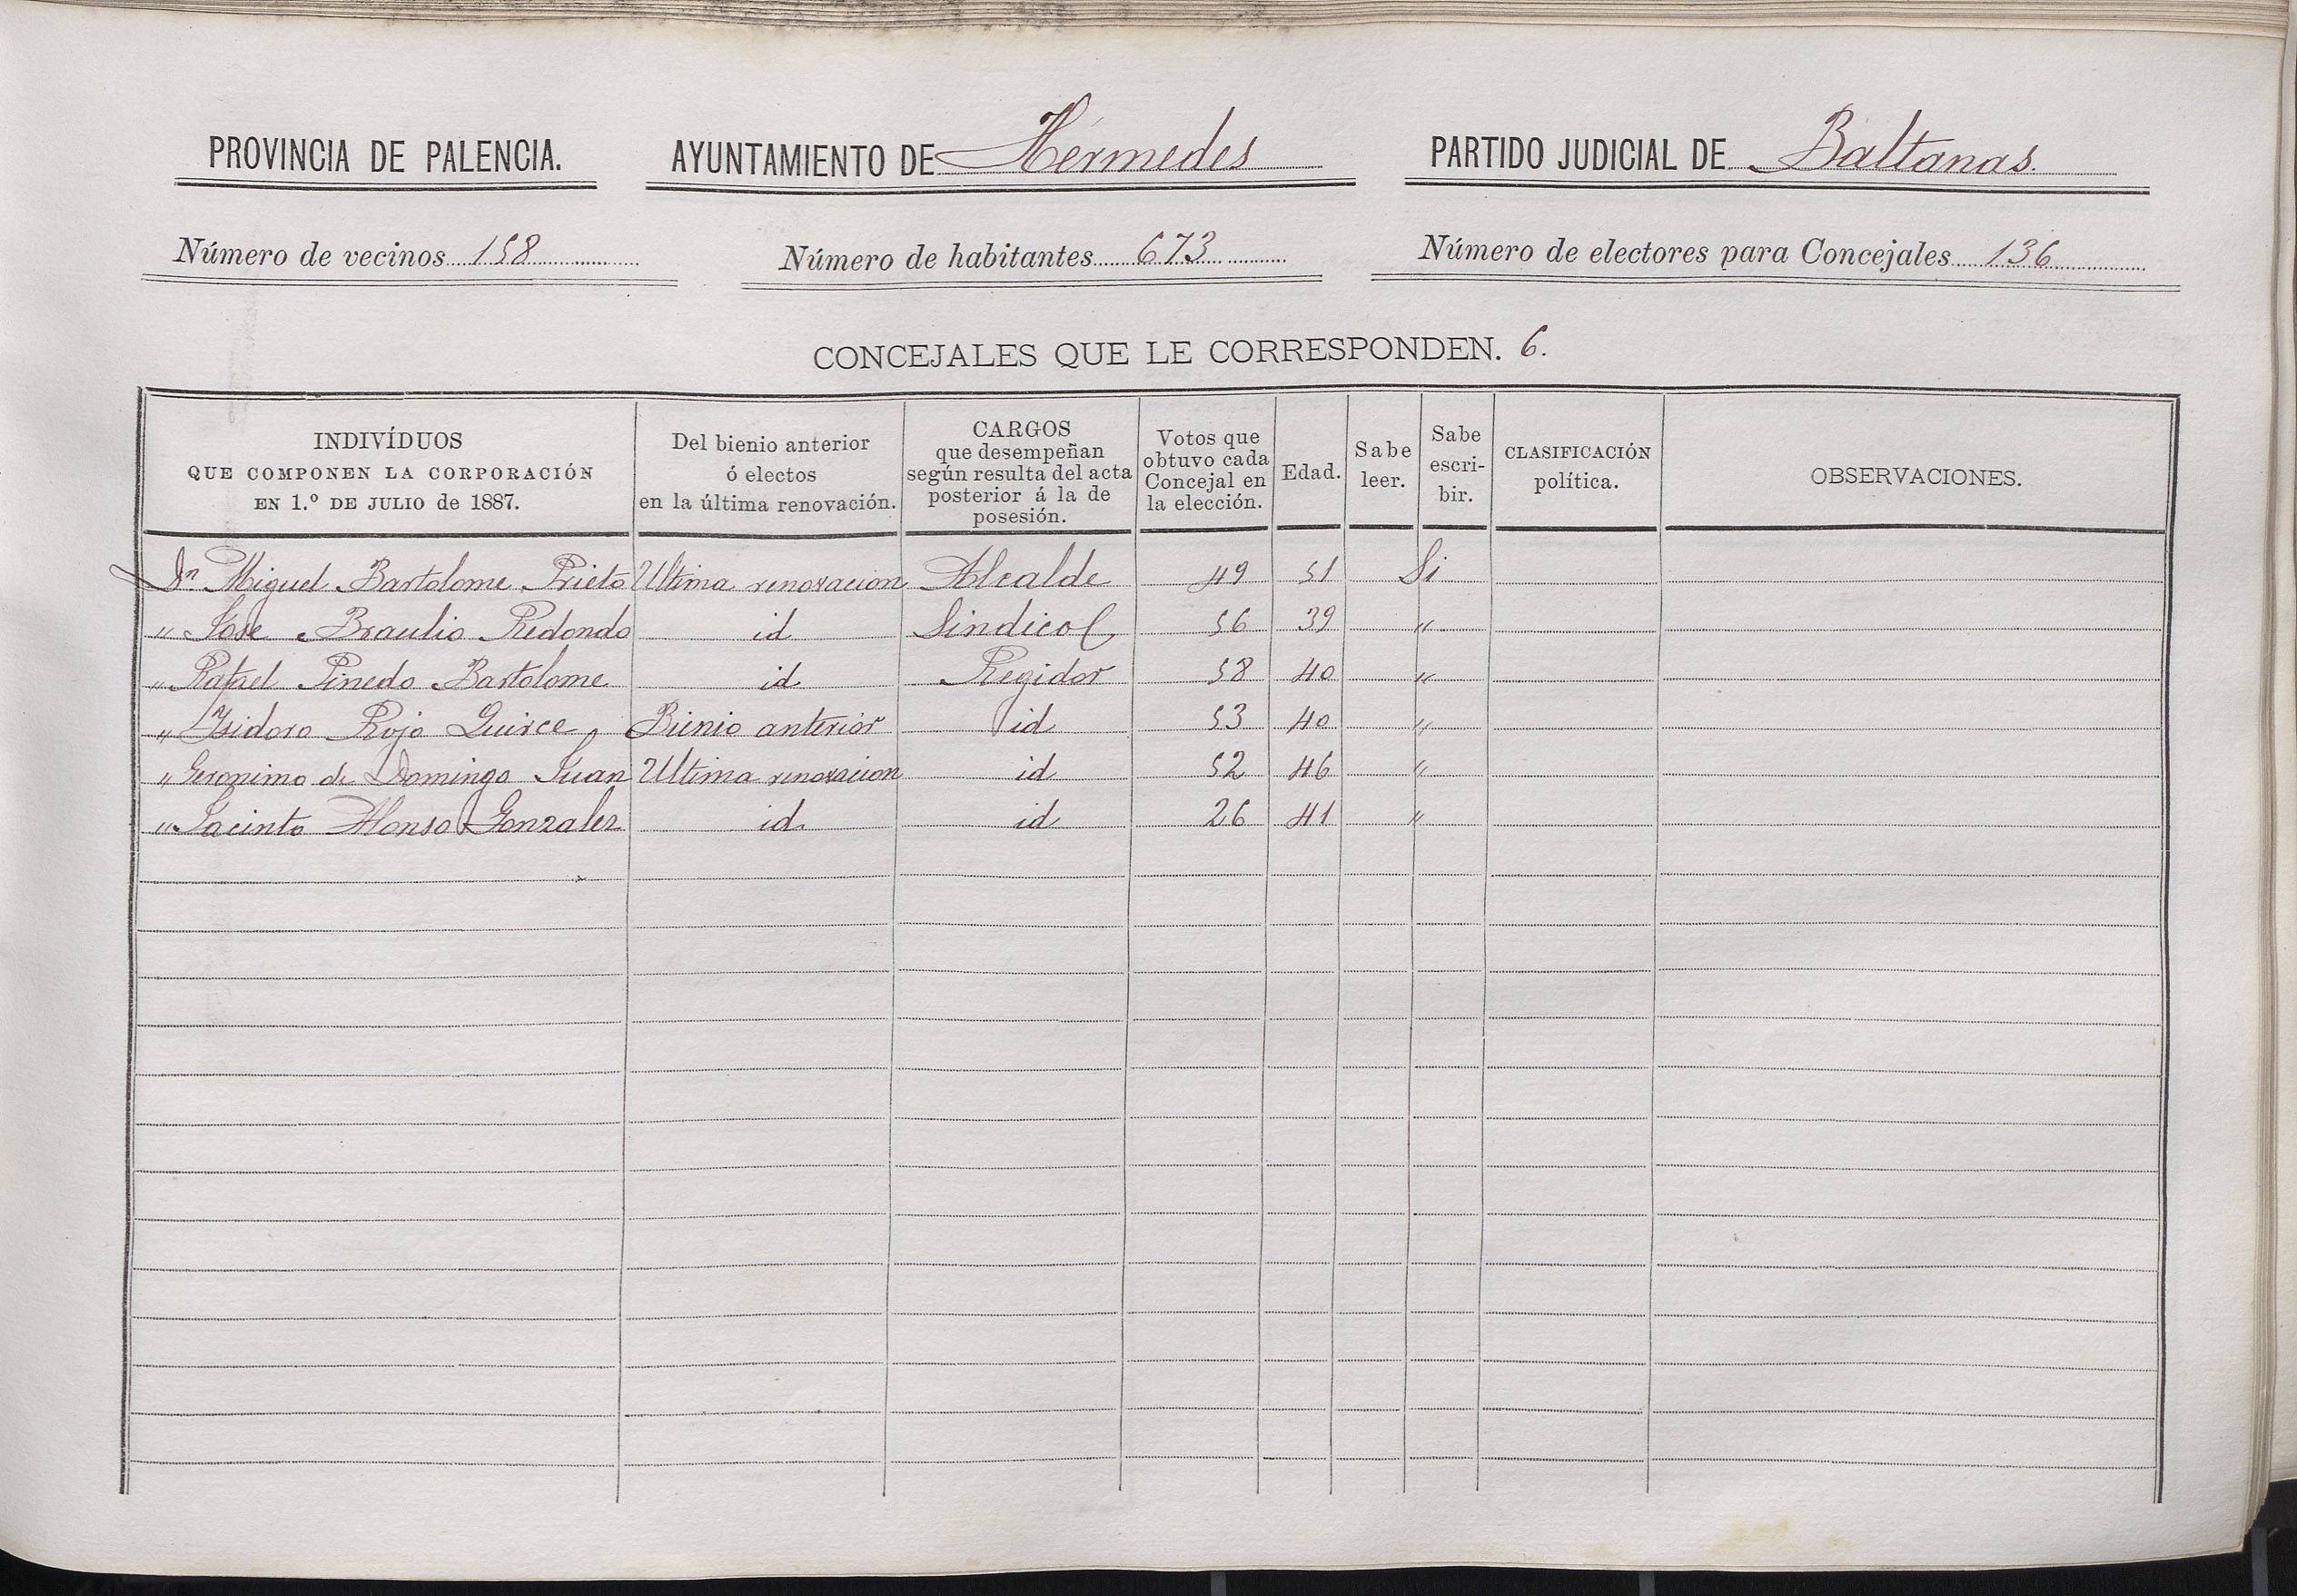 PROVINCIA DE PALENCIA. AYUNTAMIENTO DE Hérmedes PARTIDO JUDICIAL DE Baltanas.
Número de vecinos 158 Número de habitantes 673 Número de electores para Concejales 136
CONCEJALES QUE LE CORRESPONDEN. 6.
INDIVÍDUOS
QUE COMPONEN LA CORPORACIÓN
EN 1.º DE JULIO de 1887.
Del bienio anterior
ó electos
en la última renovación.
CARGOS
que desempeñan
según resulta del acta
posterior á la de
posesión.
Votos que
obtuvo cada
Concejal en
la elección.
Edad.
Sabe
leer.
Sabe
escri-
bir.
CLASIFICACIÓN
política.
OBSERVACIONES.
Dn Miguel Bartolome Prieto Ultima renovacion Alcalde 49 51 Si
" Jose Braulio Redondo id Sindico 56 39 "
" Rafael Pinedo Bartolome id Regidor 58 40 "
" Ysidoro Rojo Quirce Bienio anterior id 53 40 "
" Geronimo de Domingo Juan Ultima renovacion id 52 46 "
" Jacinto Alonso Gonzalez id id 26 41 "